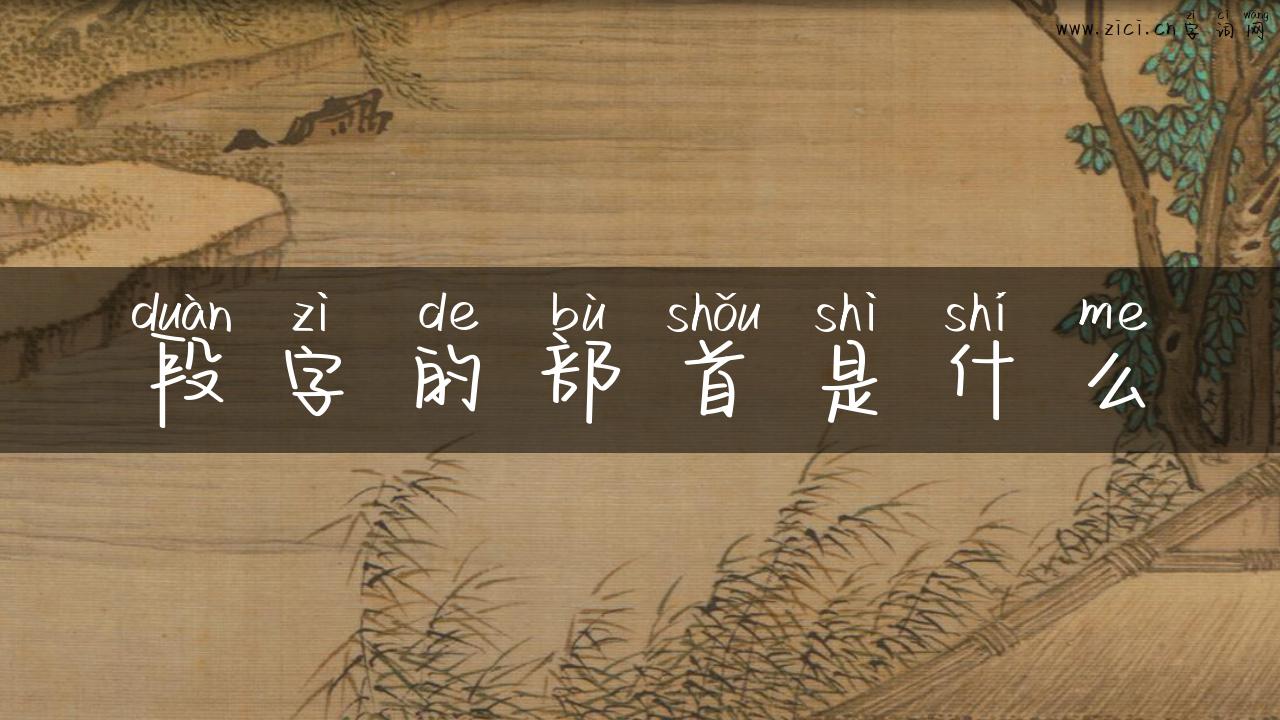 zì cí wǎng
www.zici.cn字词网
duàn zì de bù shǒu shì shí me
段字的部首是什么